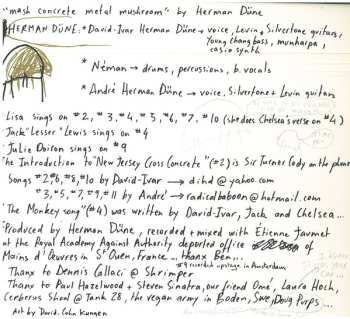 "mash concrete metal mushroom" by Herman Düne
HERMAN DÜNE: * David-Ivar Herman Düne → voice, Levin + Silvertone guitars,
Young chang bass, munharpa,
casio synth
* Néman → drums, percussions, b. vocals
* André Herman Düne → voice, Silvertone + Levin guitars
Lisa sings on #2, #3, #4, #5, #6, #7, #10 (she does Chelsea's verse on #4)
Jack "Lesser" Lewis sings on #4
Julie Doiron sings on #9
The Introduction to "New Jersey Cross Concrete" (#2) is Sir Turner Cody on the phone
Songs #2, #6, #8, #10 by David-Ivar → dihd@yahoo.com
#3, #5, #7, #9, #11 by André → radicalbaboon@hotmail.com
"The Monkey song" (#4) was written by David-Ivar, Jack and Chelsea...
Produced by Herman Düne, recorded + mixed with Etienne Jaumet
at the Royal Academy Against Authority deported office of
Mains d'Oeuvres in St Ouen, France... thanx Ben...
#9 recorded upstage in Amsterdam
Thanx to Dennis Callaci @ Shrimper
Thanx to Paul Hazelwood + Steven Sinatra, our friend Omé, Laura Hoch,
Cerberus Shoal @ Tank 28, the vegan army in Boden, Swe, Doug Purps...
Art by David-Ivar